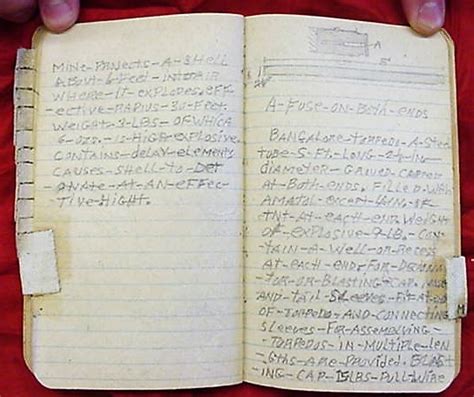 MINE-PROJECTS-A-SHELL
ABOUT-6-FEET-INTO-AIR
WHERE-IT-EXPLODES. EFF-
ECTIVE-RADIUS-30-FEET.
WEIGHT-3-LBS-OF-WHICH
6-OZS.-IS-HIGH-EXPLOSIVE.
CONTAINS-DELAY-ELEMENTS
CAUSES-SHELL-TO-DET
ONATE-AT-AN-EFFEC-
TIVE-HIGHT.
A
A-FUSE-ON-BOTH-ENDS
BANGALORE-TORPEDO-A-STEEL
TUBE-5-FT.-LONG-2⅛-IN-
DIAMETER-CAPPED
AT-BOTH-ENDS. FILLED-WITH
AMATOL-EXCEPT-OF
TNT-AT-EACH-END. WEIGHT
OF-EXPLOSIVE-9-LBS.-CON-
TAIN-A-WELL-OR-RECESS
AT-EACH-END-FOR-DETONA-
TOR-OR-BLASTING-CAP.
AND-TAIL-SLEEVES-FIT-AT-END
OF-TORPEDO-AND-CONNECTING
SLEEVES-FOR-ASSEMBLING-
TORPEDOS-IN-MULTIPLE-LEN
GTHS-ARE-PROVIDED. BLAST
ING-CAP-LBS-PULL-WIRE